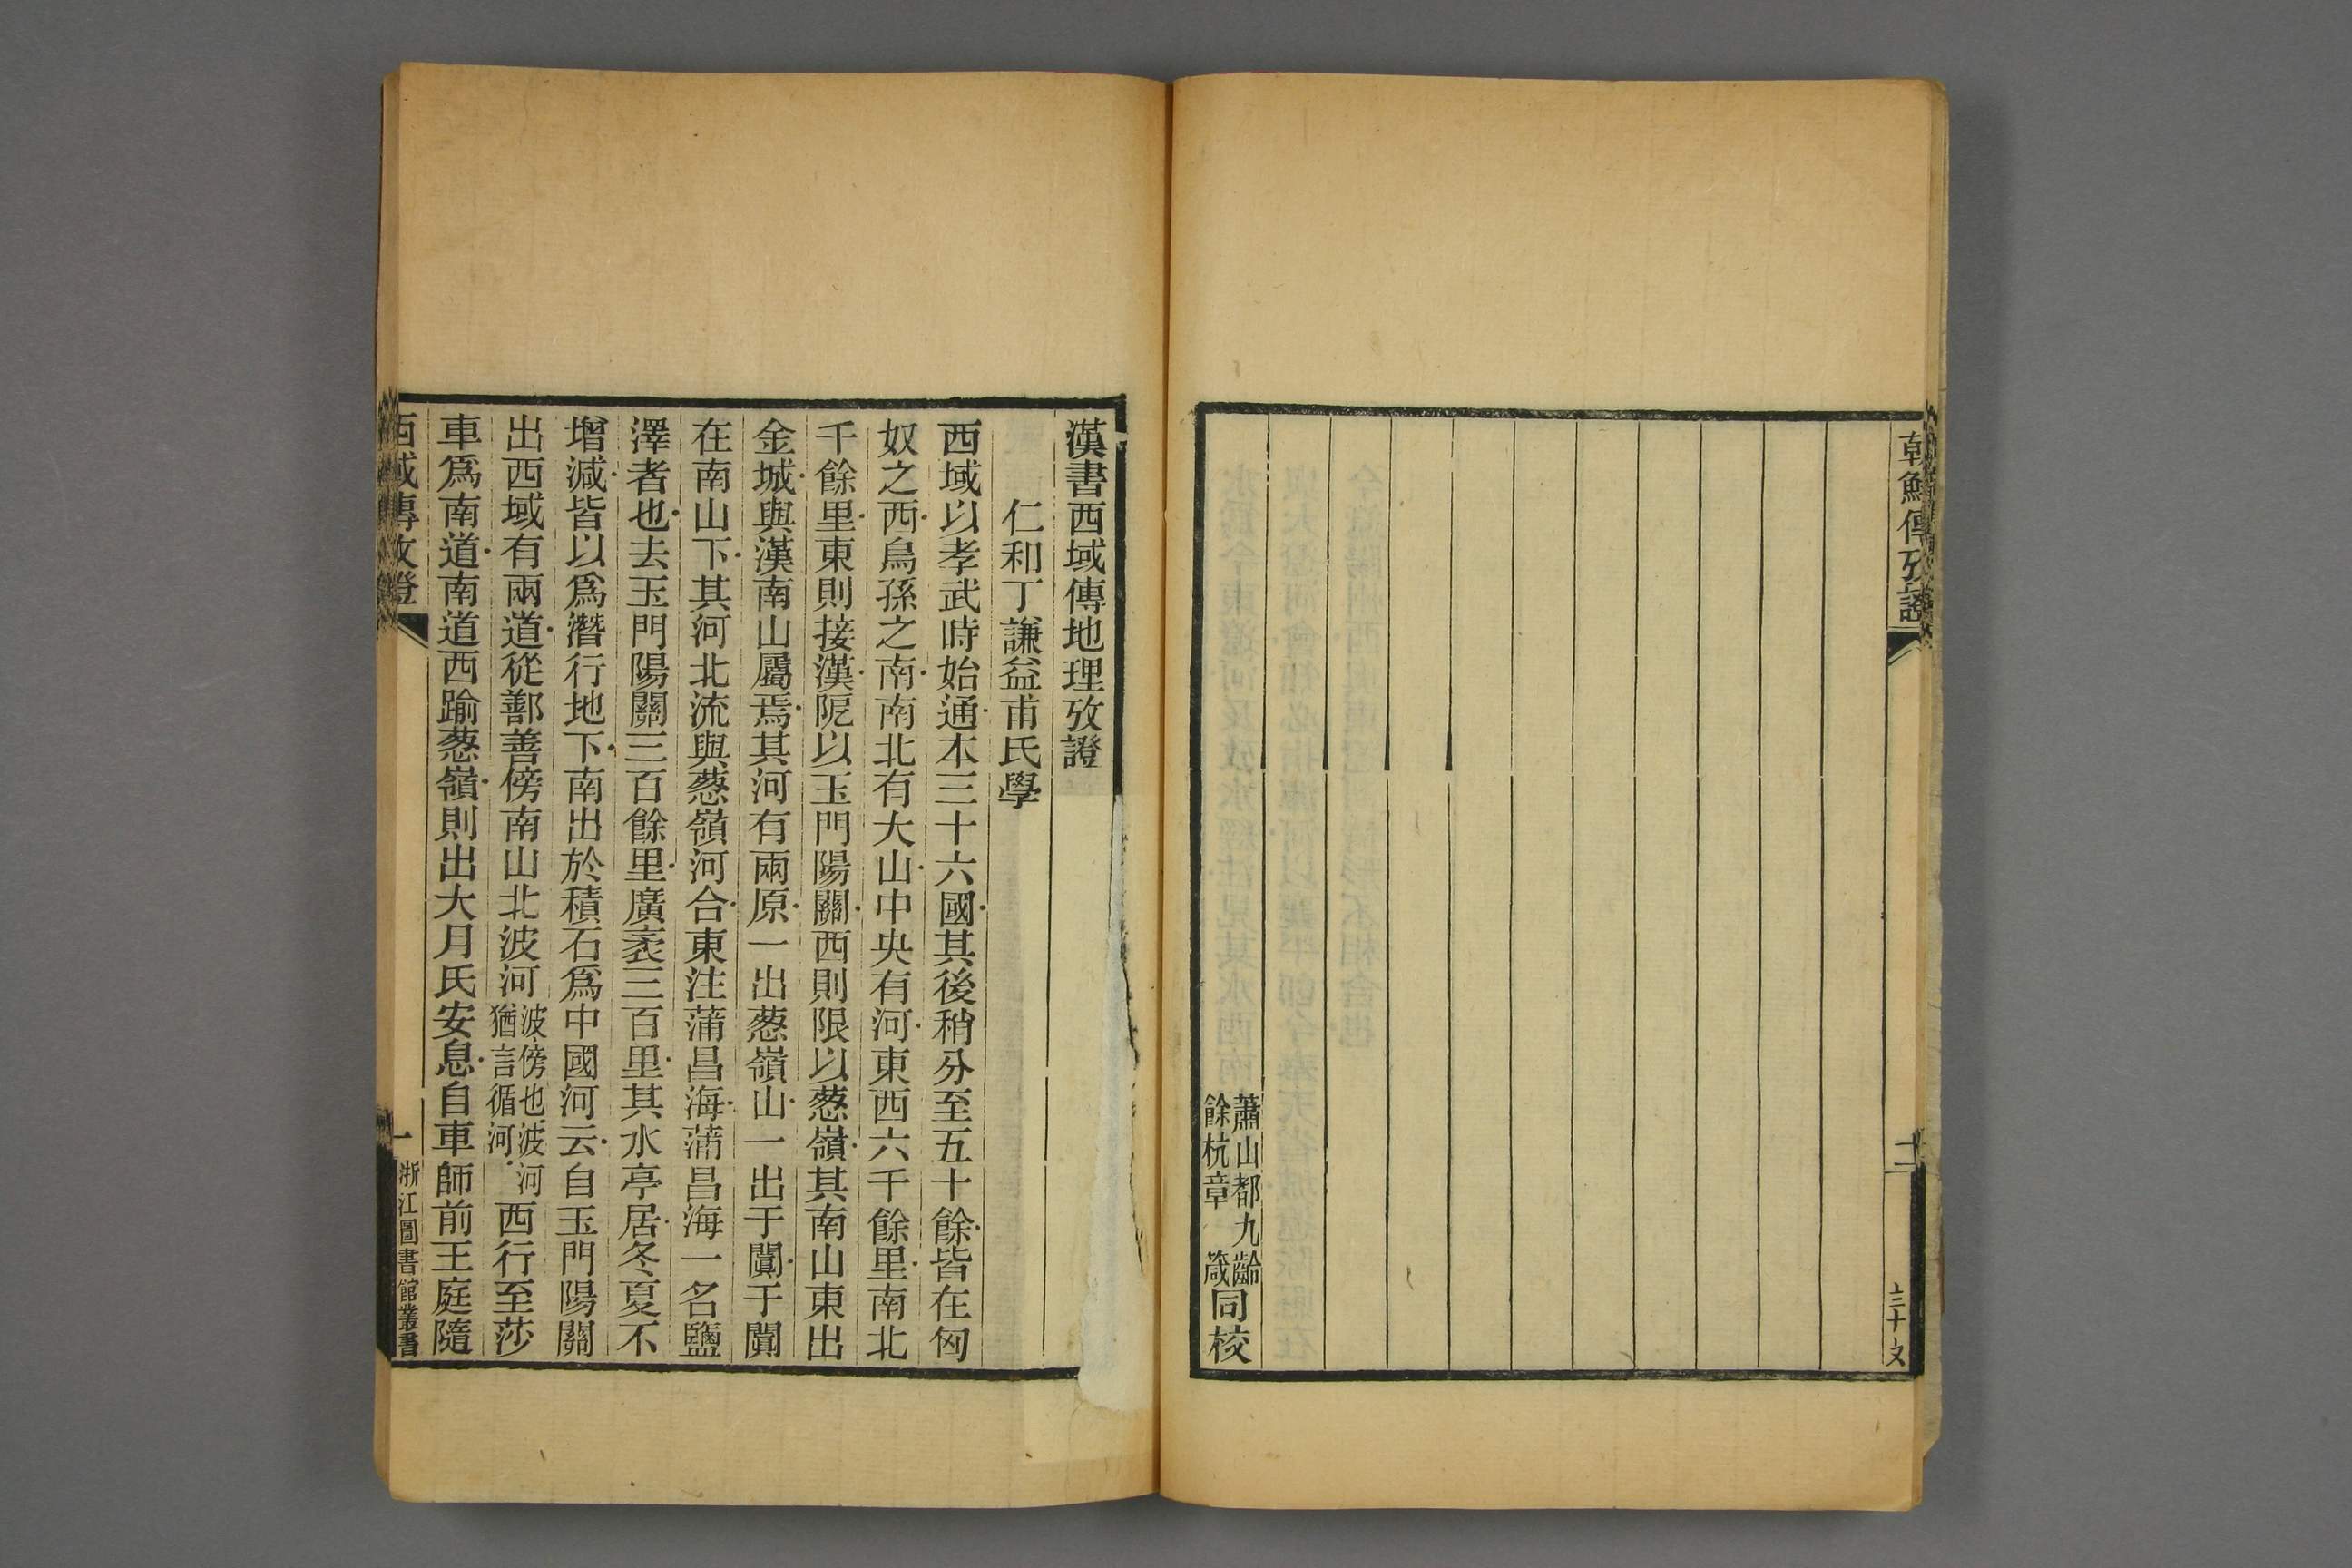 朝鮮傳攷證
十二
三十文
蕭山都九齡
餘杭章 箴
同校
漢書西域傳地理攷證
仁和丁謙益甫氏學
西域以孝武時始通本三十六國其後稍分至五十餘皆在匈
奴之西烏孫之南南北有大山中央有河東西六千餘里南北
千餘里東則接漢阸以玉門陽關西則限以葱嶺其南山東出
金城與漢南山屬焉其河有兩原一出葱嶺山一出于闐于闐
在南山下其河北流與葱嶺河合東注蒲昌海蒲昌海一名鹽
澤者也去玉門陽關三百餘里廣袤三百里其水亭居冬夏不
增減皆以爲潛行地下南出於積石爲中國河云自玉門陽關
出西域有兩道從鄯善傍南山北波河波傍也波河猶言循河西行至莎
車爲南道南道西踰葱嶺則出大月氏安息自車師前王庭隨
西域傳攷證
一
浙江圖書館叢書